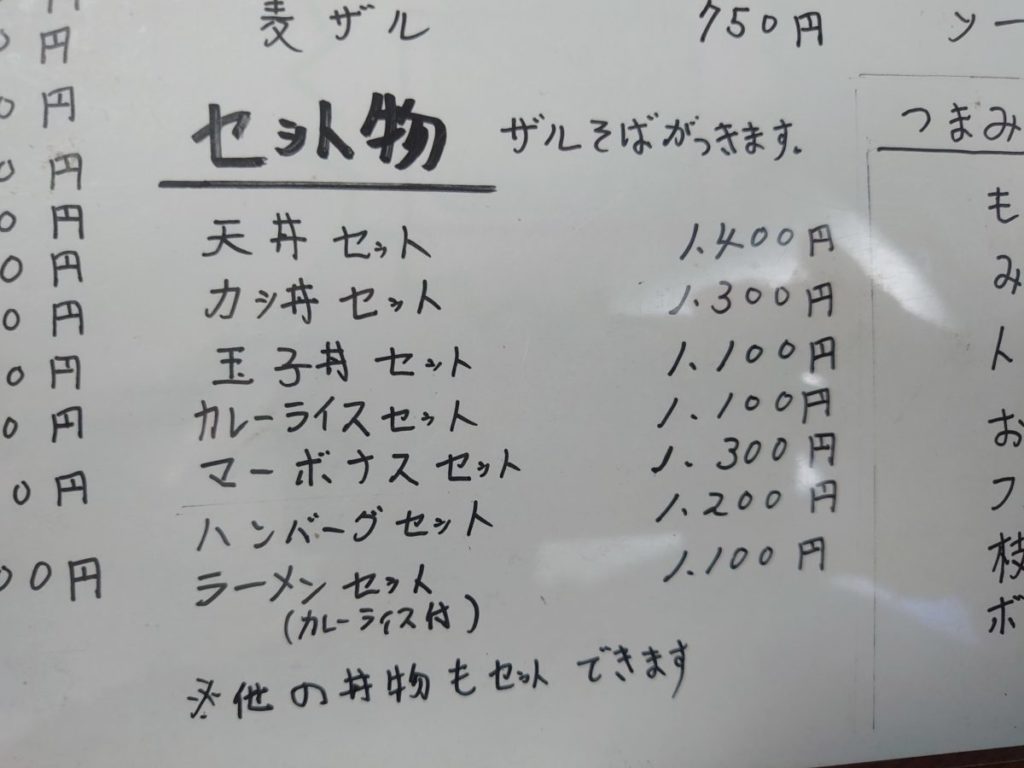 麦ザル 750円
セット物 ザルそばがつきます。
天丼セット 1.400円
カツ丼セット 1.300円
玉子丼セット 1.100円
カレーライスセット 1.100円
マーボナスセット 1.300円
ハンバーグセット 1.200円
ラーメンセット 1.100円
(カレーライス付)
※他の丼物もセットできます
0円
0円
0円
0円
0円
0円
0円
0円
0円
00円
ソー
つまみ
も
み
ト
お
フ
枝
ボ